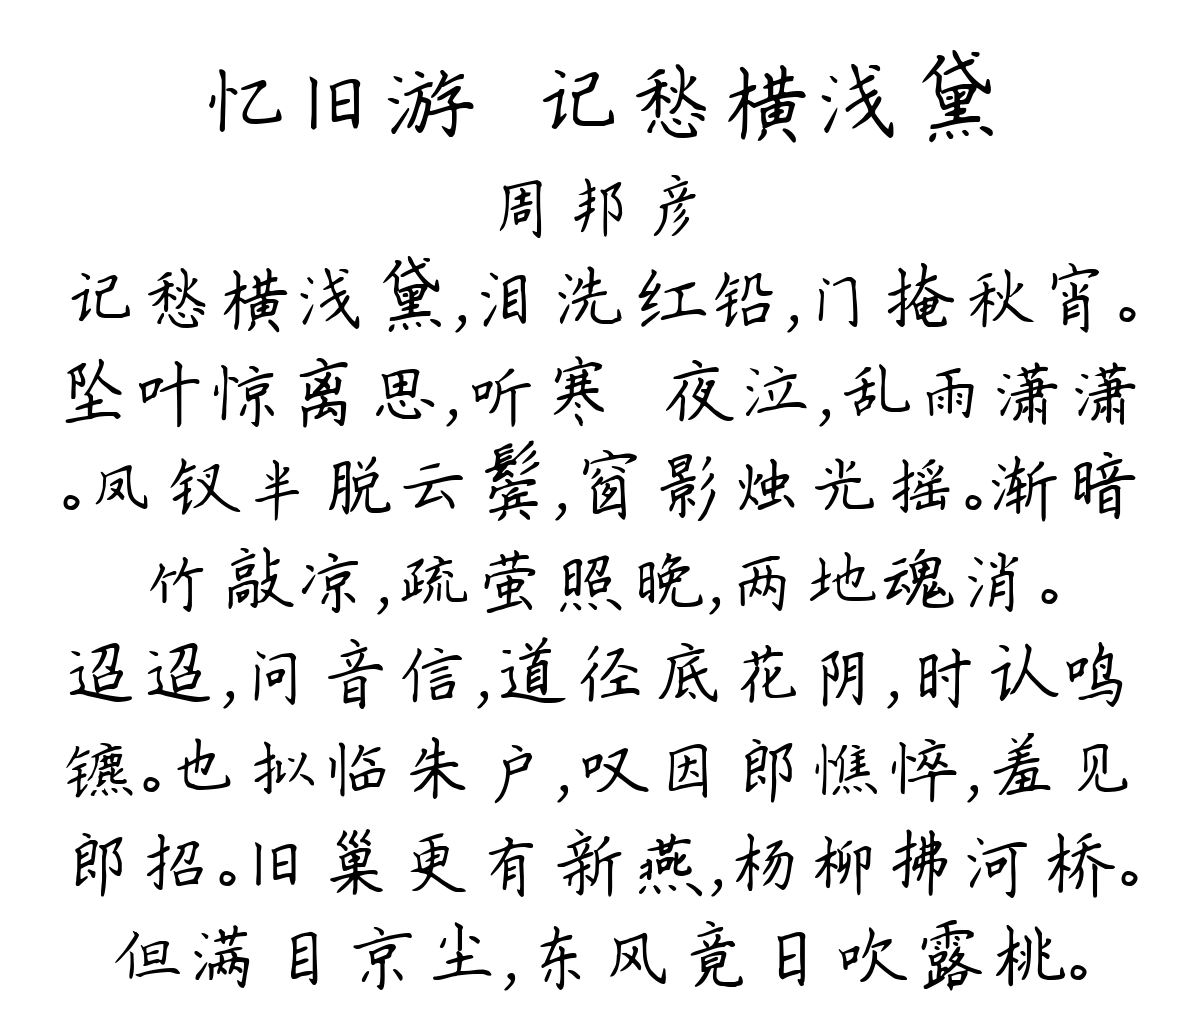 忆旧游 记愁横浅黛
周邦彦
记愁横浅黛,泪洗红铅,门掩秋宵。
坠叶惊离思,听寒 夜泣,乱雨潇潇
。凤钗半脱云鬓,窗影烛光摇。渐暗
竹敲凉,疏萤照晚,两地魂消。
迢迢,问音信,道径底花阴,时认鸣
镳。也拟临朱户,叹因郎憔悴,羞见
郎招。旧巢更有新燕,杨柳拂河桥。
但满目京尘,东风竟日吹露桃。